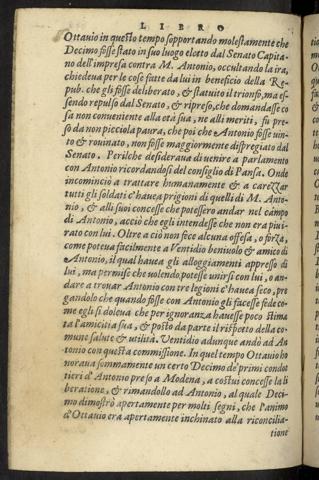 LIBRO
Ottauio in questo tempo sopportando molestamente che
Decimo fosse stato in suo luogo eletto dal Senato Capita-
no dell'impresa contra M. Antonio, occultando la ira,
chiedeua per le cose fatte da lui in beneficio della Re-
pub. che gli fosse deliberato, & statuito il trionfo, ma es-
sendo repulso dal Senato, & ripreso, che domandasse co
sa non conueniente alla età sua, ne alli meriti, fu pre-
so da non picciola paura, che poi che Antonio fosse uin-
to & rouinato, non fosse maggiormente dispregiato dal
Senato. Perilche desideraua di uenire a parlamento
con Antonio ricordandosi del consiglio di Pansa. Onde
incominciò a trattare humanamente & a carezzar
tutti gli soldati c'hauea prigioni di quelli di M. Anto-
nio, & alli suoi concesse che potessero andar nel campo
di Antonio, acciò che egli intendesse che non era piu i-
rato con lui. Oltre a ciò non fece alcuna offesa, o forza,
come poteua facilmente a Ventidio beniuolo & amico di
Antonio, il qual hauea gli alloggiamenti appresso di
lui, ma permise che uolendo potesse unirsi con lui, o an-
dare a trouar Antonio con tre legioni c'hauea seco, pre
gandolo che quando fosse con Antonio gli facesse fede co-
me egli si doleua che per ignoranza hauesse poco stima
ta l'amicitia sua, & posto da parte il rispetto della co-
mune salute & utilità. Ventidio adunque andò ad An
tonio con questa commissione. In quel tempo Ottauio ho
noraua sommamente un certo Decimo de' primi condot
tieri d'Antonio preso a Modena, a costui concesse la li
beratione, & rimandollo ad Antonio, al quale Deci-
mo dimostrò apertamente per molti segni, che l'animo
d'Ottauio era apertamente inchinato alla riconcilia-
tione